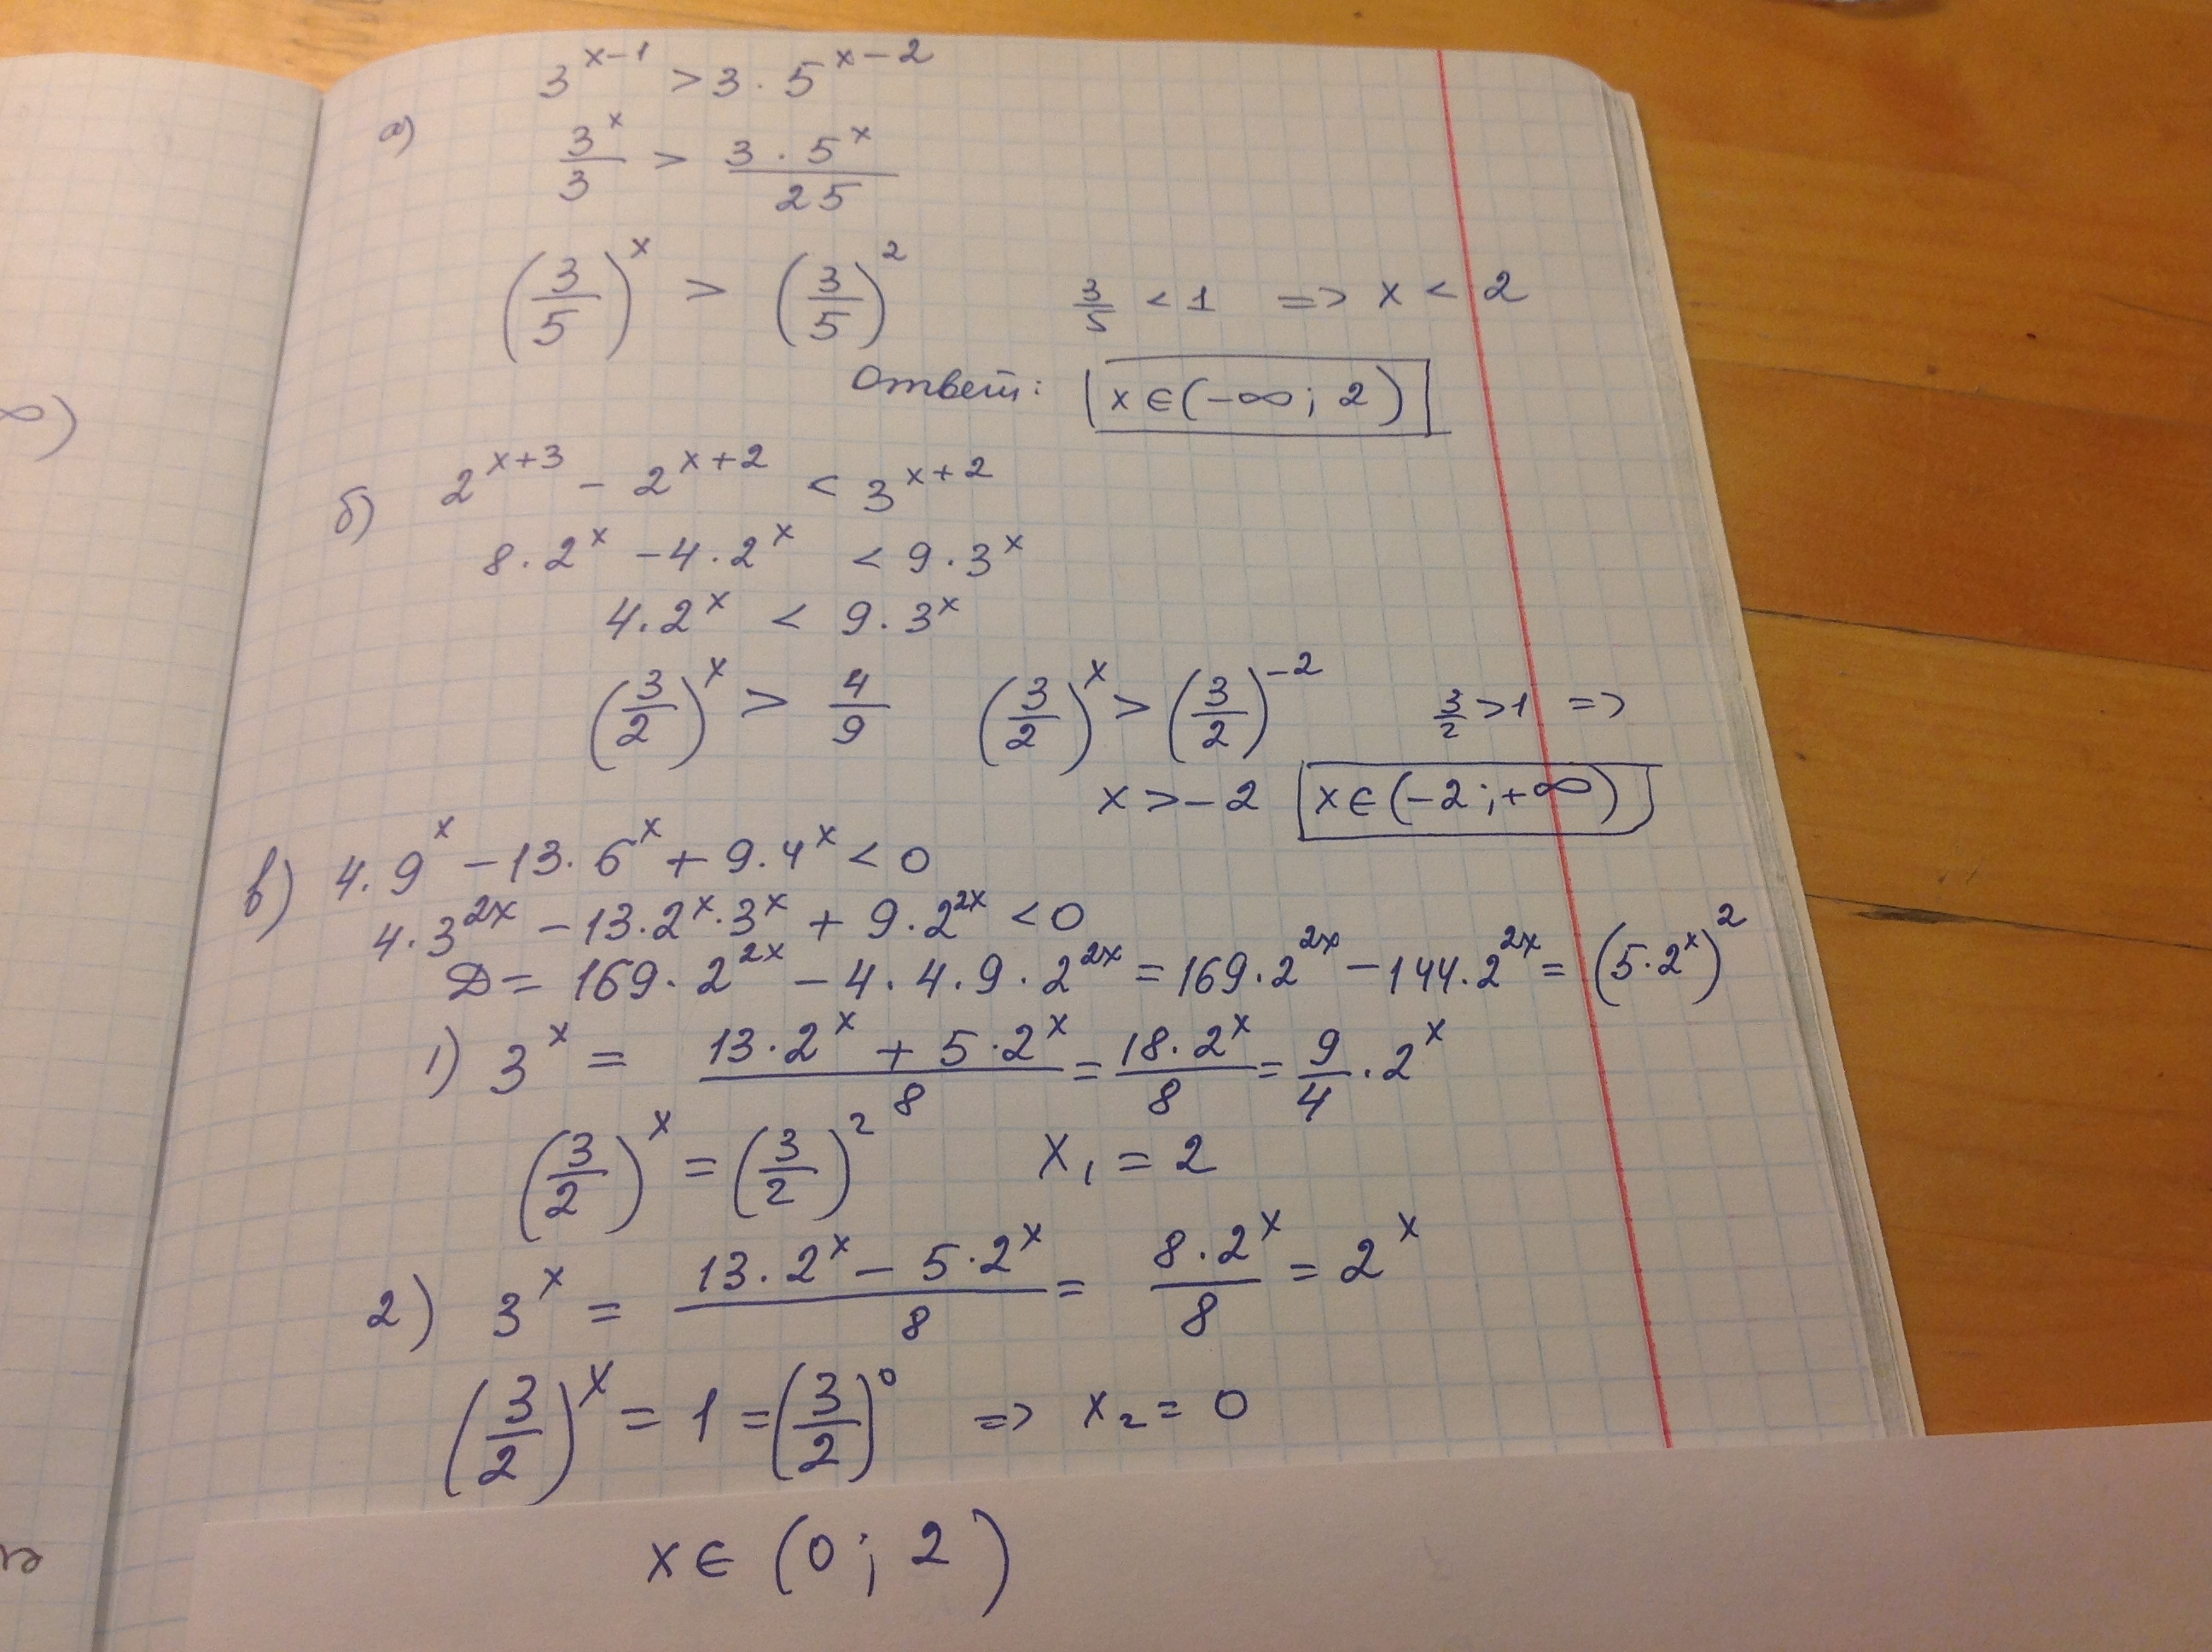 3^{x-1} > 3 · 5^{x-2}
а) 3^x/3 > 3 · 5^x/25
(3/5)^x > (3/5)^2   3/5 < 1 => x < 2
Ответ: x ∈ (-∞; 2)
∞)
б) 2^{x+3} - 2^{x+2} < 3^{x+2}
8 · 2^x - 4 · 2^x < 9 · 3^x
4 · 2^x < 9 · 3^x
(3/2)^x > 4/9   (3/2)^x > (3/2)^{-2}   3/2 > 1 =>
x > -2   x ∈ (-2; +∞)
в) 4 · 9^x - 13 · 6^x + 9 · 4^x < 0
4 · 3^{2x} - 13 · 2^x · 3^x + 9 · 2^{2x} < 0
D = 169 · 2^{2x} - 4 · 4 · 9 · 2^{2x} = 169 · 2^{2x} - 144 · 2^{2x} = (5 · 2^x)^2
1) 3^x = (13 · 2^x + 5 · 2^x)/8 = 18 · 2^x/8 = 9/4 · 2^x
(3/2)^x = (3/2)^2   x_1 = 2
2) 3^x = (13 · 2^x - 5 · 2^x)/8 = 8 · 2^x/8 = 2^x
(3/2)^x = 1 = (3/2)^0 => x_2 = 0
x ∈ (0; 2)